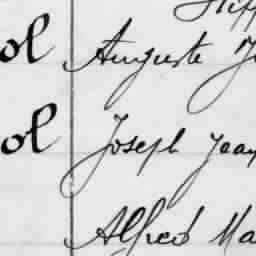 ol Auguste
ol Joseph Jean
Alfred Ma